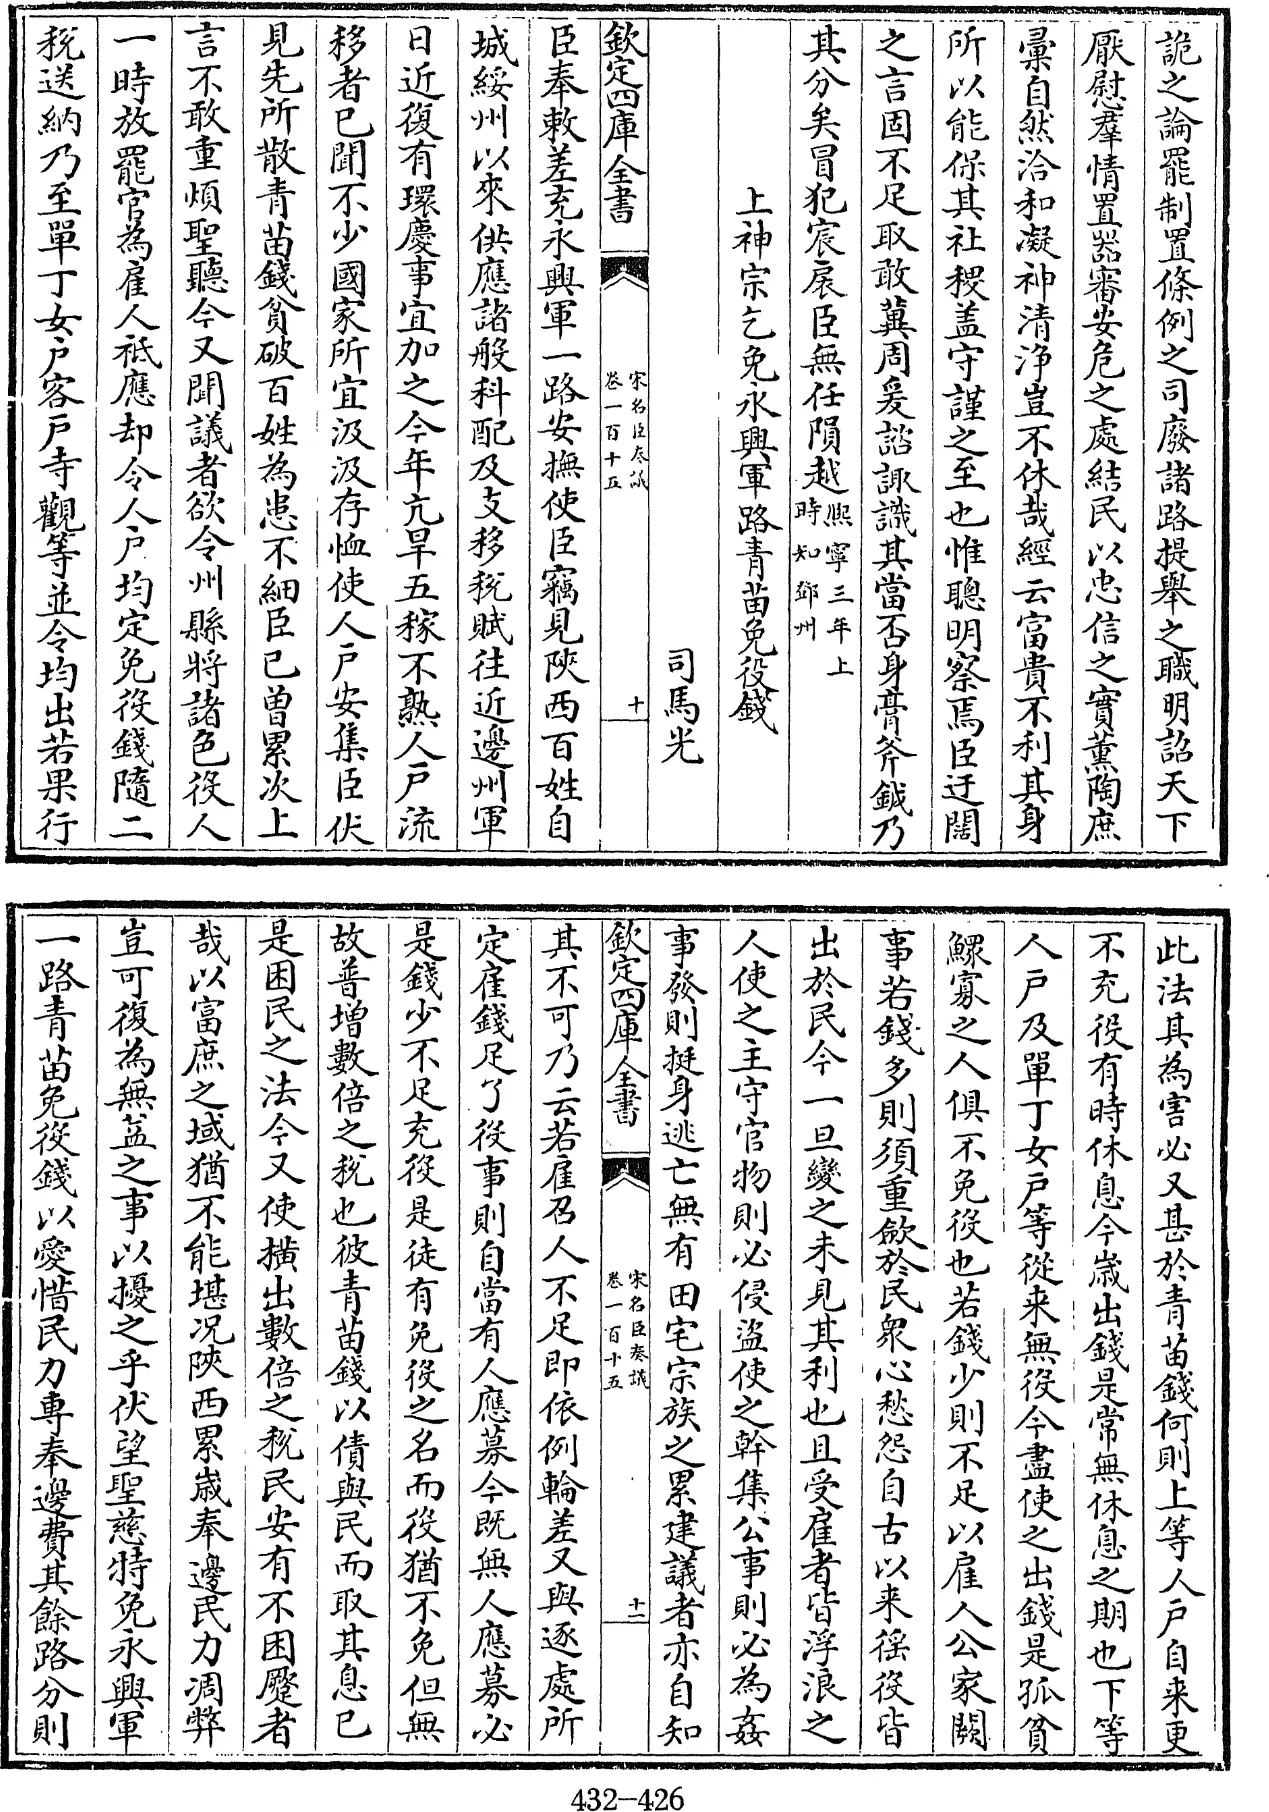 詭之論罷制置條例之司廢諸路提舉之職明詔天下
厭慰羣情置器審安危之處結民以忠信之實薰陶庶
彙自然洽和凝神清浄豈不休哉經云富貴不利其身
所以能保其社稷盖守謹之至也惟聰明察焉臣迂闊
之言固不足取敢冀周爰諮諏識其當否身膏斧鉞乃
其分矣冒犯宸扆臣無任隕越熙寧三年上時知鄧州
上神宗乞免永興軍路青苗免役錢
司馬光
欽定四庫全書
宋名臣奏議
卷一百十五
十
臣奉敕差充永興軍一路安撫使臣竊見陝西百姓自
城綏州以來供應諸般科配及支移稅賦往近邊州軍
日近復有環慶事宜加之今年亢旱五稼不熟人戶流
移者已聞不少國家所宜汲汲存恤使人戶安集臣伏
見先所散青苗錢貧破百姓為患不細臣已曽累次上
言不敢重煩聖聽今又聞議者欲令州縣將諸色役人
一時放罷官為雇人祗應却令人戶均定免役錢隨二
稅送納乃至單丁女戶客戶寺觀等並令均出若果行
此法其為害必又甚於青苗錢何則上等人戶自来更
不充役有時休息今歲出錢是常無休息之期也下等
人戶及單丁女戶等從来無役今盡使之出錢是孤貧
鰥寡之人俱不免役也若錢少則不足以雇人公家闕
事若錢多則須重歛於民衆心愁怨自古以来徭役皆
出於民今一旦變之未見其利也且受雇者皆浮浪之
人使之主守官物則必侵盜使之幹集公事則必為姦
事發則挺身逃亡無有田宅宗族之累建議者亦自知
欽定四庫全書
宋名臣奏議
卷一百十五
十一
其不可乃云若雇召人不足即依例輪差又與逐處所
定雇錢足了役事則自當有人應募今既無人應募必
是錢少不足充役是徒有免役之名而役猶不免但無
故普增數倍之稅也彼青苗錢以債與民而取其息已
是困民之法今又使橫出數倍之稅民安有不困蹙者
哉以富庶之域猶不能堪况陝西累歲奉邊民力凋弊
豈可復為無益之事以擾之乎伏望聖慈特免永興軍
一路青苗免役錢以愛惜民力專奉邊費其餘路分則
432-426